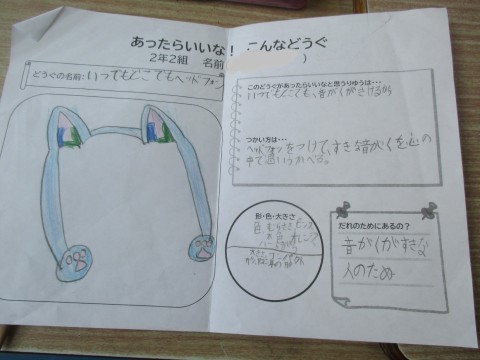 あったらいいな！ こんなどうぐ
2年2組 名前
)
どうぐの名前: いつでもどこでもヘッドフォン
このどうぐがあったらいいなと思うりゆうは・・・
いつでもどこでも、音がくがきけるから
つかい方は・・・
ヘッドフォンをつけて、すきな音がくを心の
中で思いうかべる。
形・色・大きさ
色 むらさき ピンク
水色
だれのためにあるの？
音がくがすきな
人のため